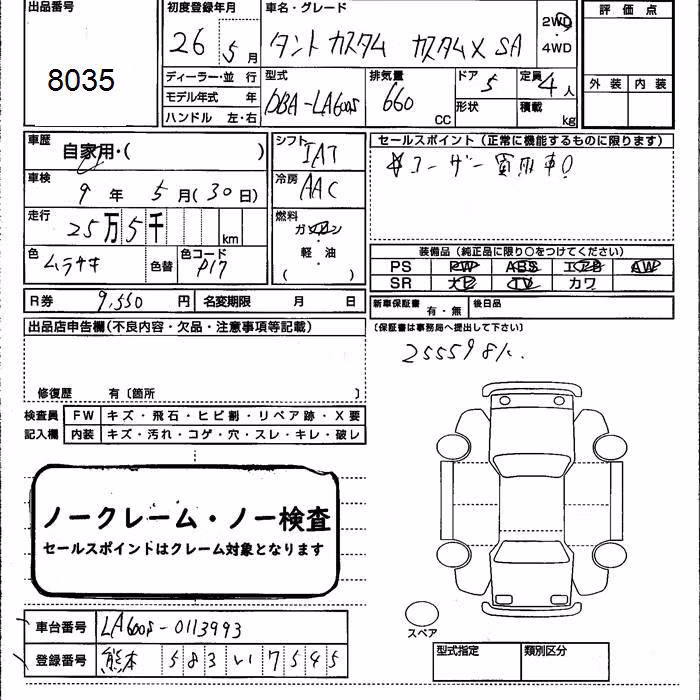 出品番号
8035
初度登録年月
26 5月
車名・グレード
タント カスタム カスタムX SA
2WD
・
4WD
評価点
外装 内装
ディーラー・並 行
モデル年式 年
ハンドル 左・右
型式
DBA-LA600S
排気量
660 CC
ドア 5
形状
定員 4人
積載 kg
車歴
自家用・( )
車検
9年 5月(30日)
走行
25万5千 km
色
ムラサキ
色替
色コード
P17
シフト
IAT
冷房
AAC
燃料
ガソリン
・
軽・油
( )
セールスポイント(正常に機能するものに限ります)
☆ユーザー買取車!
装備品(純正品に限り○をつけてください)
PS PW ABS エアB AW
SR ナビ TV カワ
R券 9,550円 名変期限 月 日
新車保証書
有・無
後日品
(保証書は事務局へ提出して下さい)
出品店申告欄(不良内容・欠品・注意事項等記載)
255598k.
修復歴 有〔箇所 〕
検査員
記入欄
FW キズ・飛石・ヒビ割・リペア跡・X要
内装 キズ・汚れ・コゲ・穴・スレ・キレ・破レ
ノークレーム・ノー検査
セールスポイントはクレーム対象となります
スペア
車台番号 LA600S-0113993
登録番号 熊本 583 い 7545
型式指定 類別区分